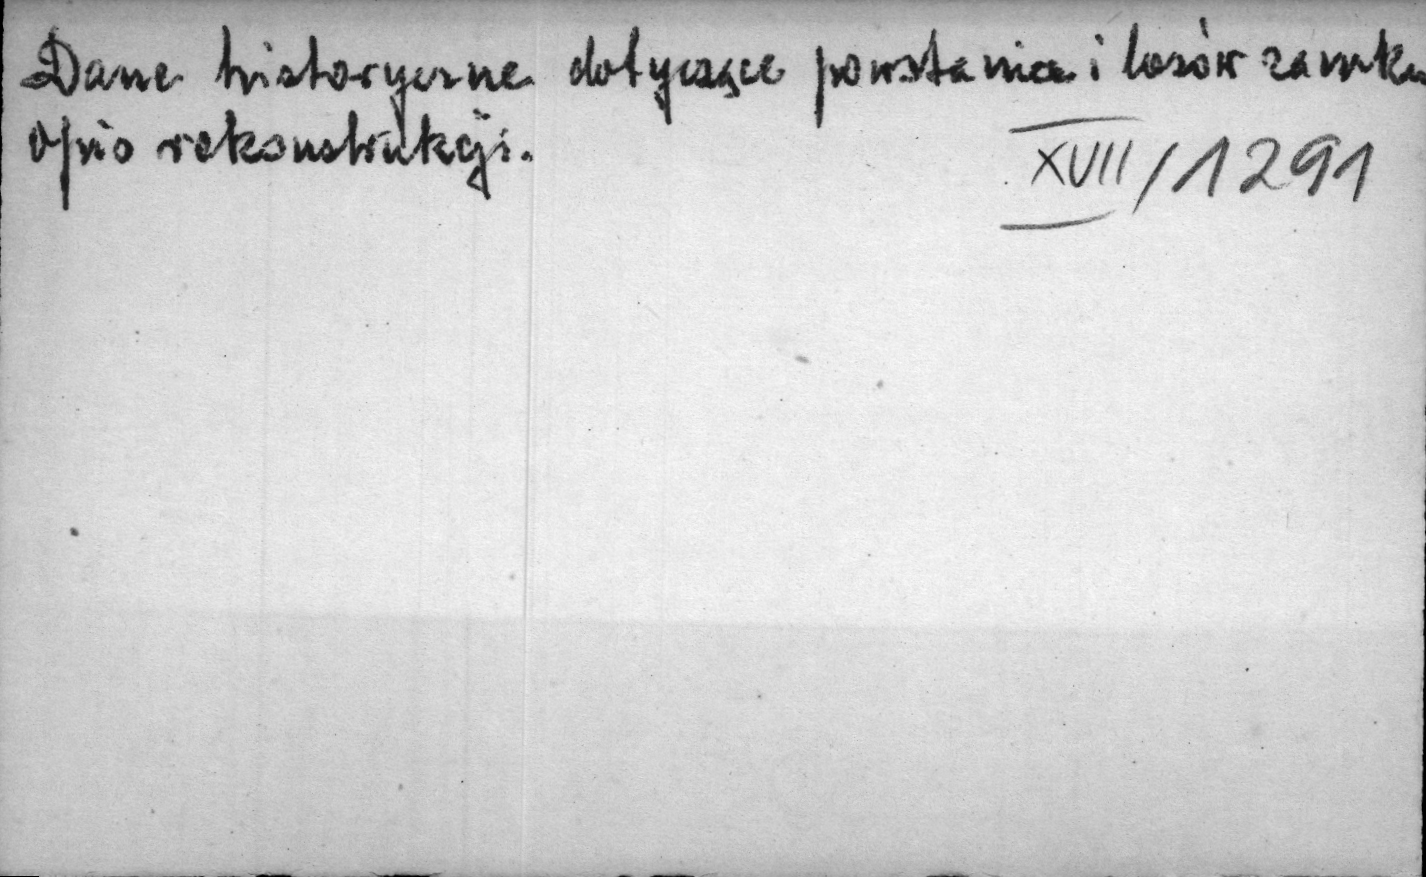 Dane historyczne dotyczące powstania i losów zamku
opis rekonstrukcji.
XVII/1291